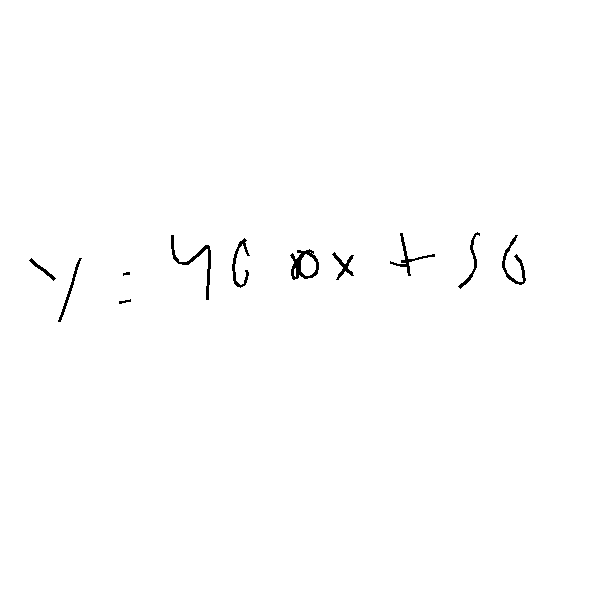 y = 400x + 50